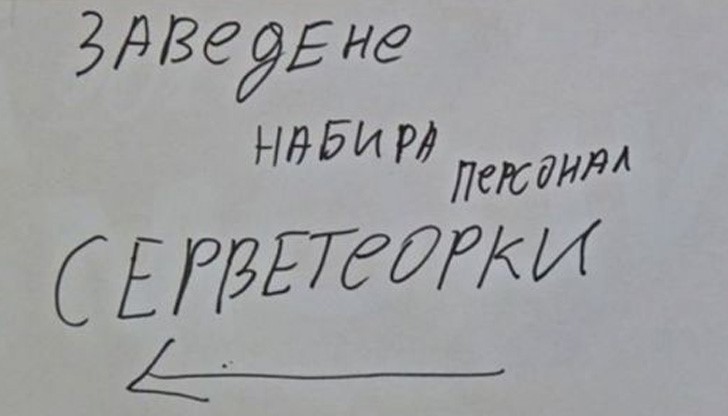 ЗАВеДЕНе
НАБИРА
ПеРСОНАЛ
СЕРВЕТеОРКИ